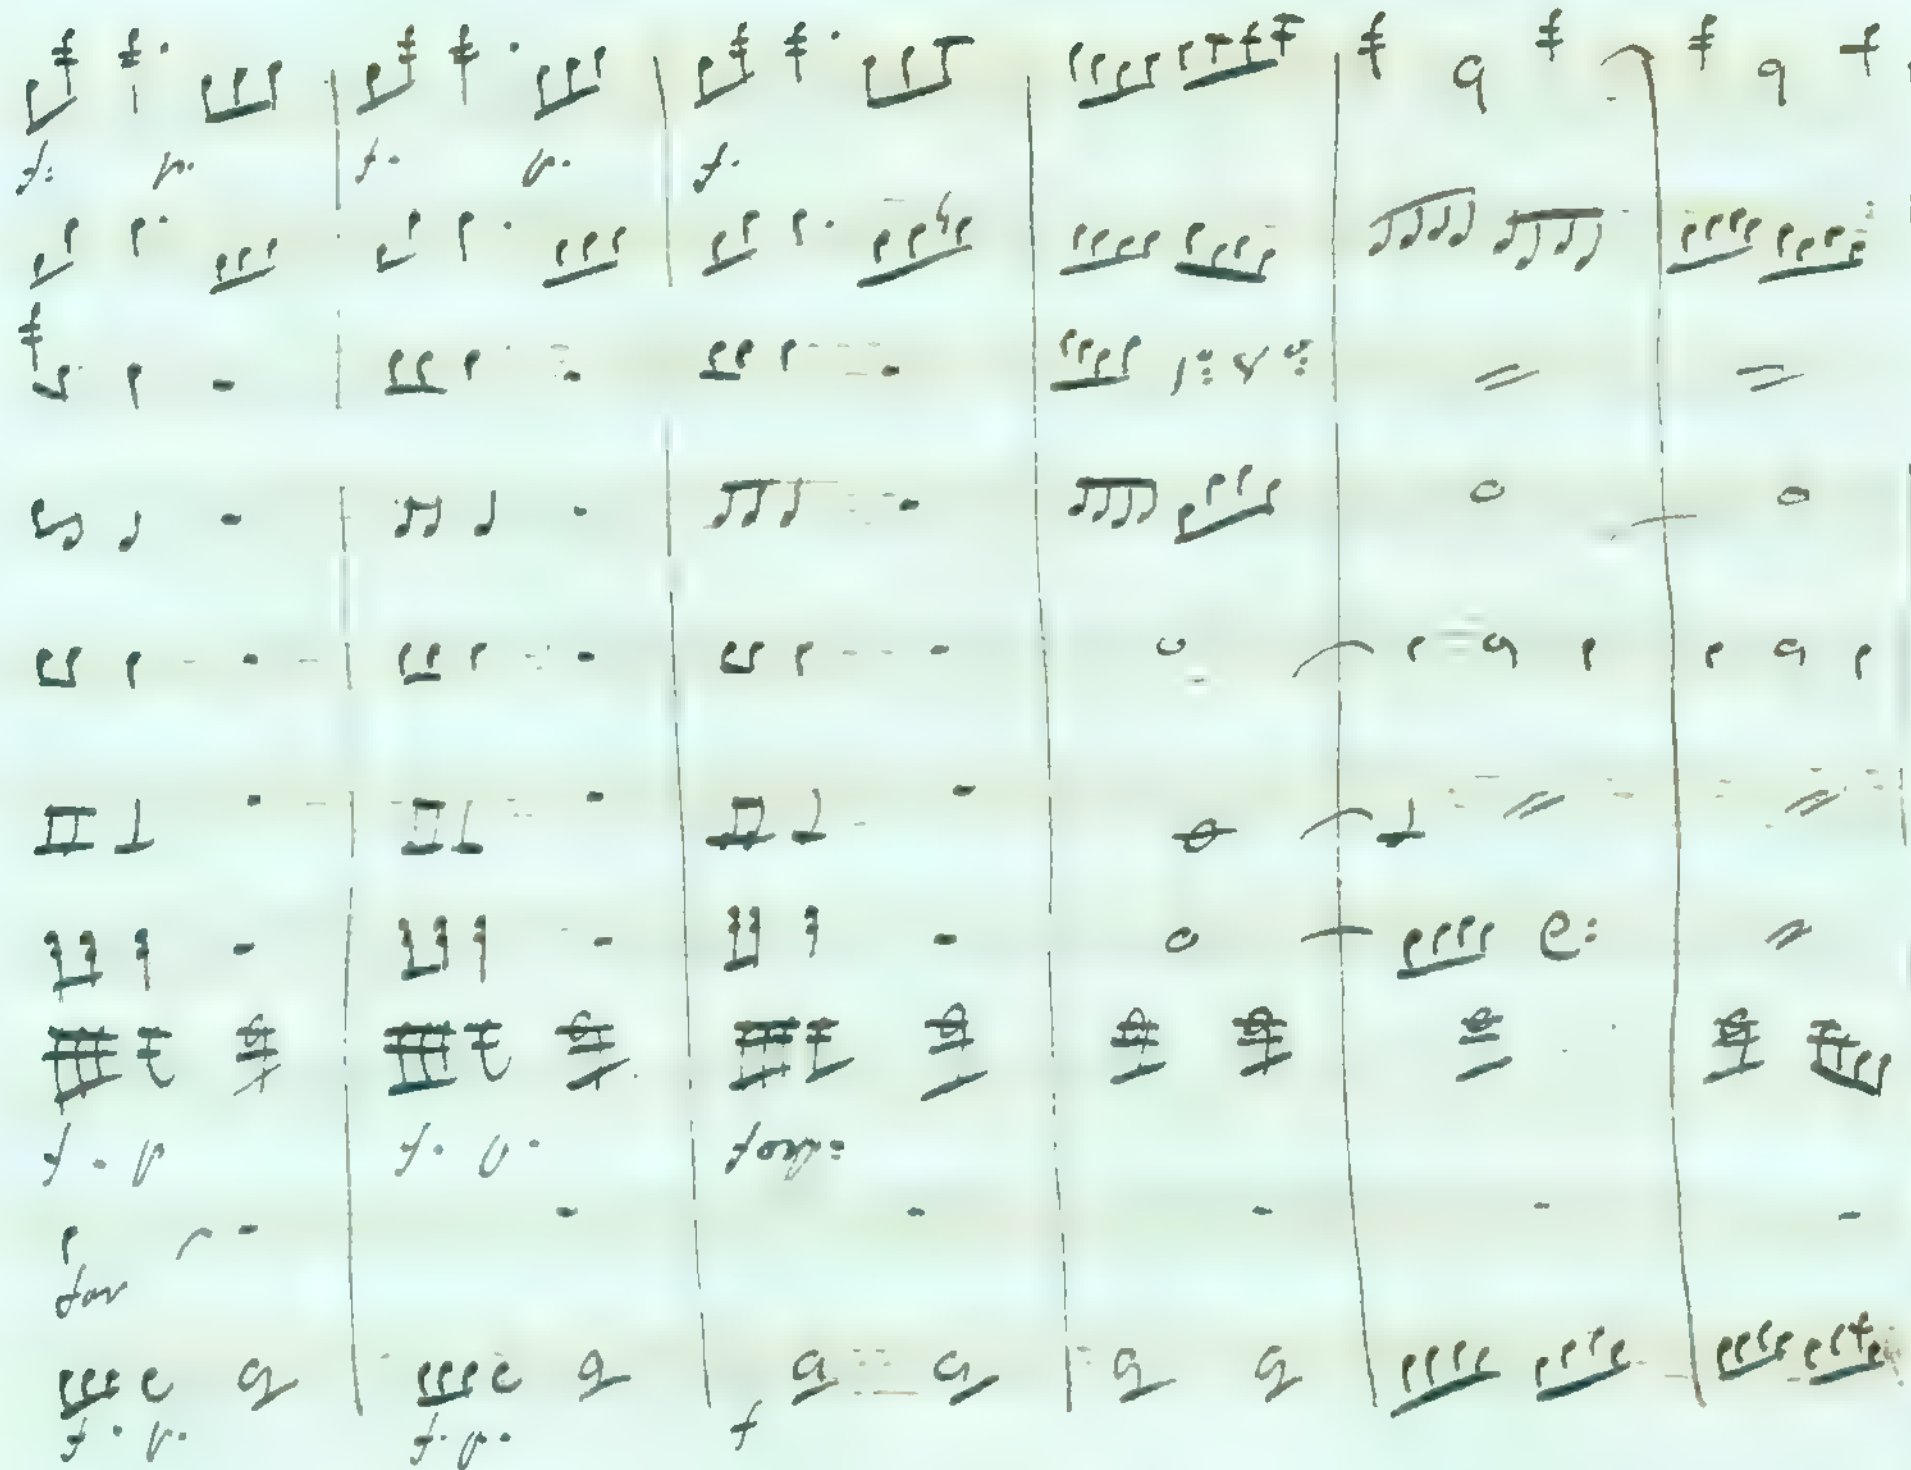 f: p. f. p. f.
f. p f. p. forp:
for
f. p. f. p. f